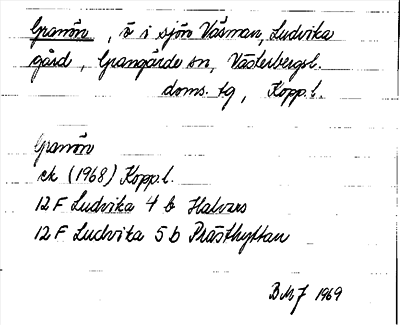 Granön, ö i sjön Väsman, Ludvika
gård, Grangärde sn, Västerbergsl.
doms. tg, Kopp. l.
Granön
ek (1968) Kopp. l.
12 F Ludvika 4 b Halvars
12 F Ludvika 5 b Prästhyttan
BMJ 1969